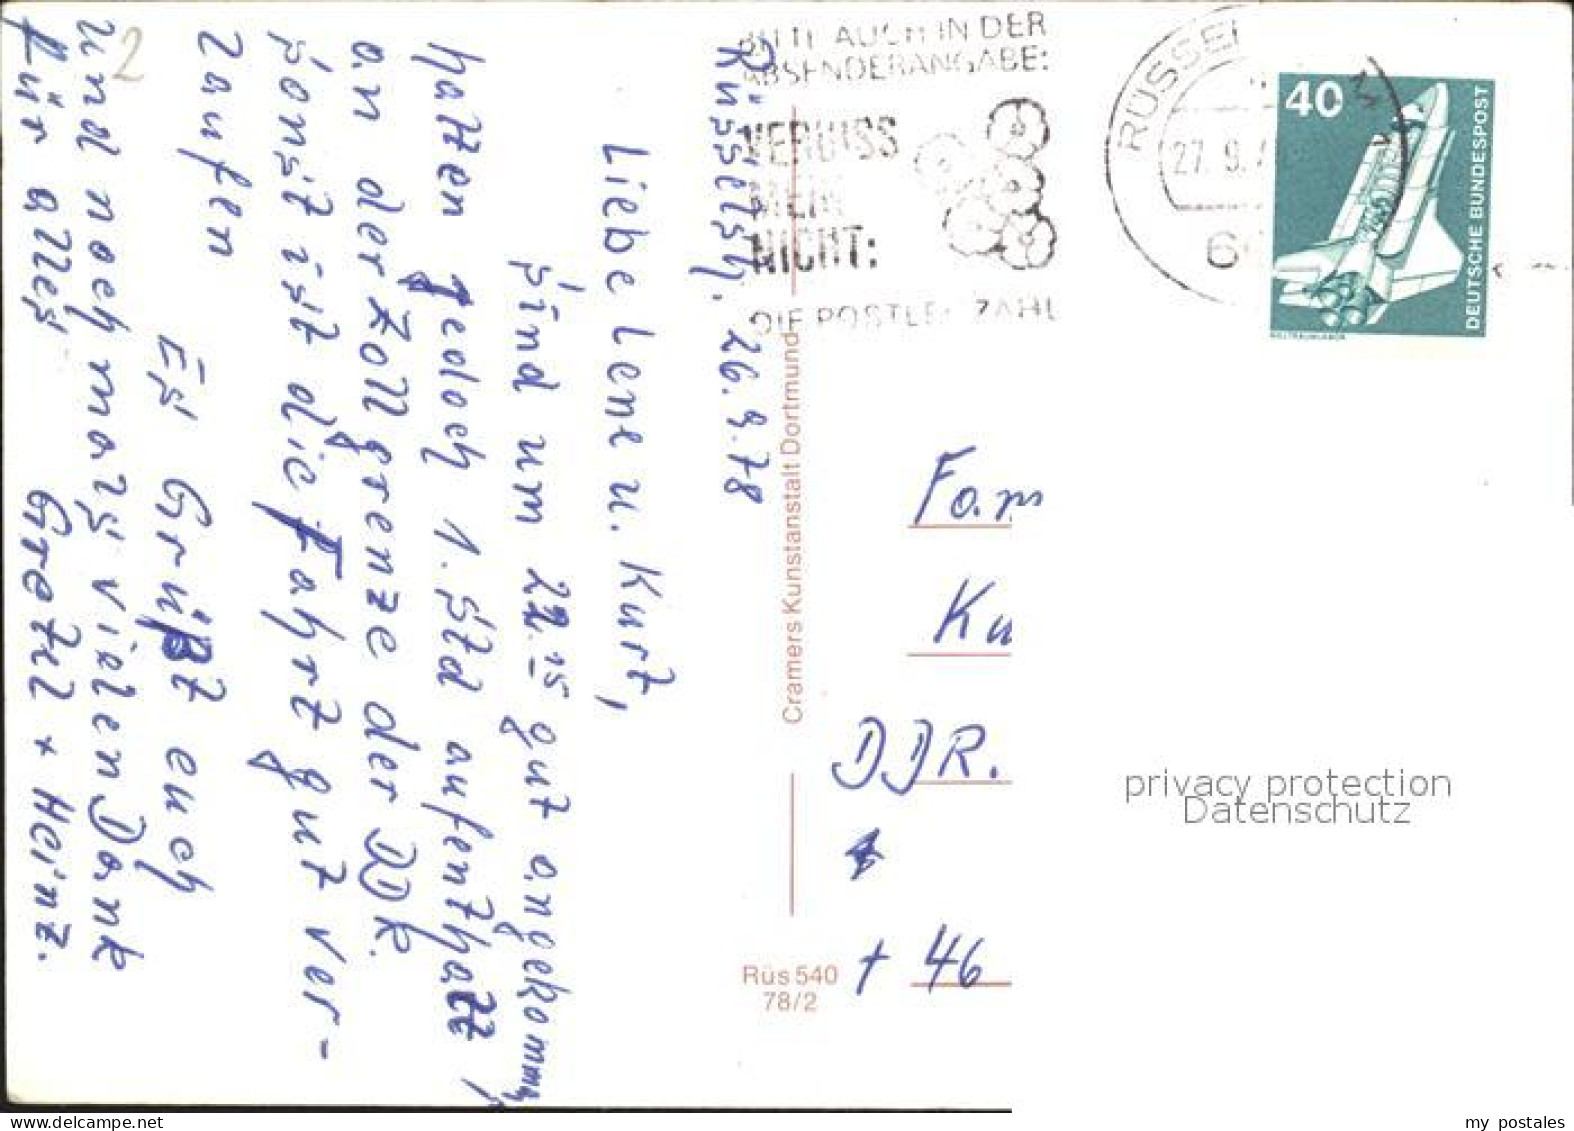 Rüsselsh. 26.9.78
Liebe Lene u. Kurt,
sind um 22.15 gut angekommen,
hatten jedoch 1. Std aufenthalt
an der Zollgrenze der DDR.
sonst ist die Fahrt gut ver-
laufen
Es Grüßt euch
und nochmals vielen Dank
für alles Gretel + Heinz.
2
BITTE AUCH IN DER
ABSENDERANGABE:
VERGISS
MEIN
NICHT:
DIE POSTLEITZAHL
RÜSSEL
27.9.7
40
DEUTSCHE BUNDESPOST
WELTRAUMLABOR
Cramers Kunstanstalt Dortmund
Rüs 540
78/2
Fam
Ku
DDR.
+ 46
privacy protection
Datenschutz
my postales